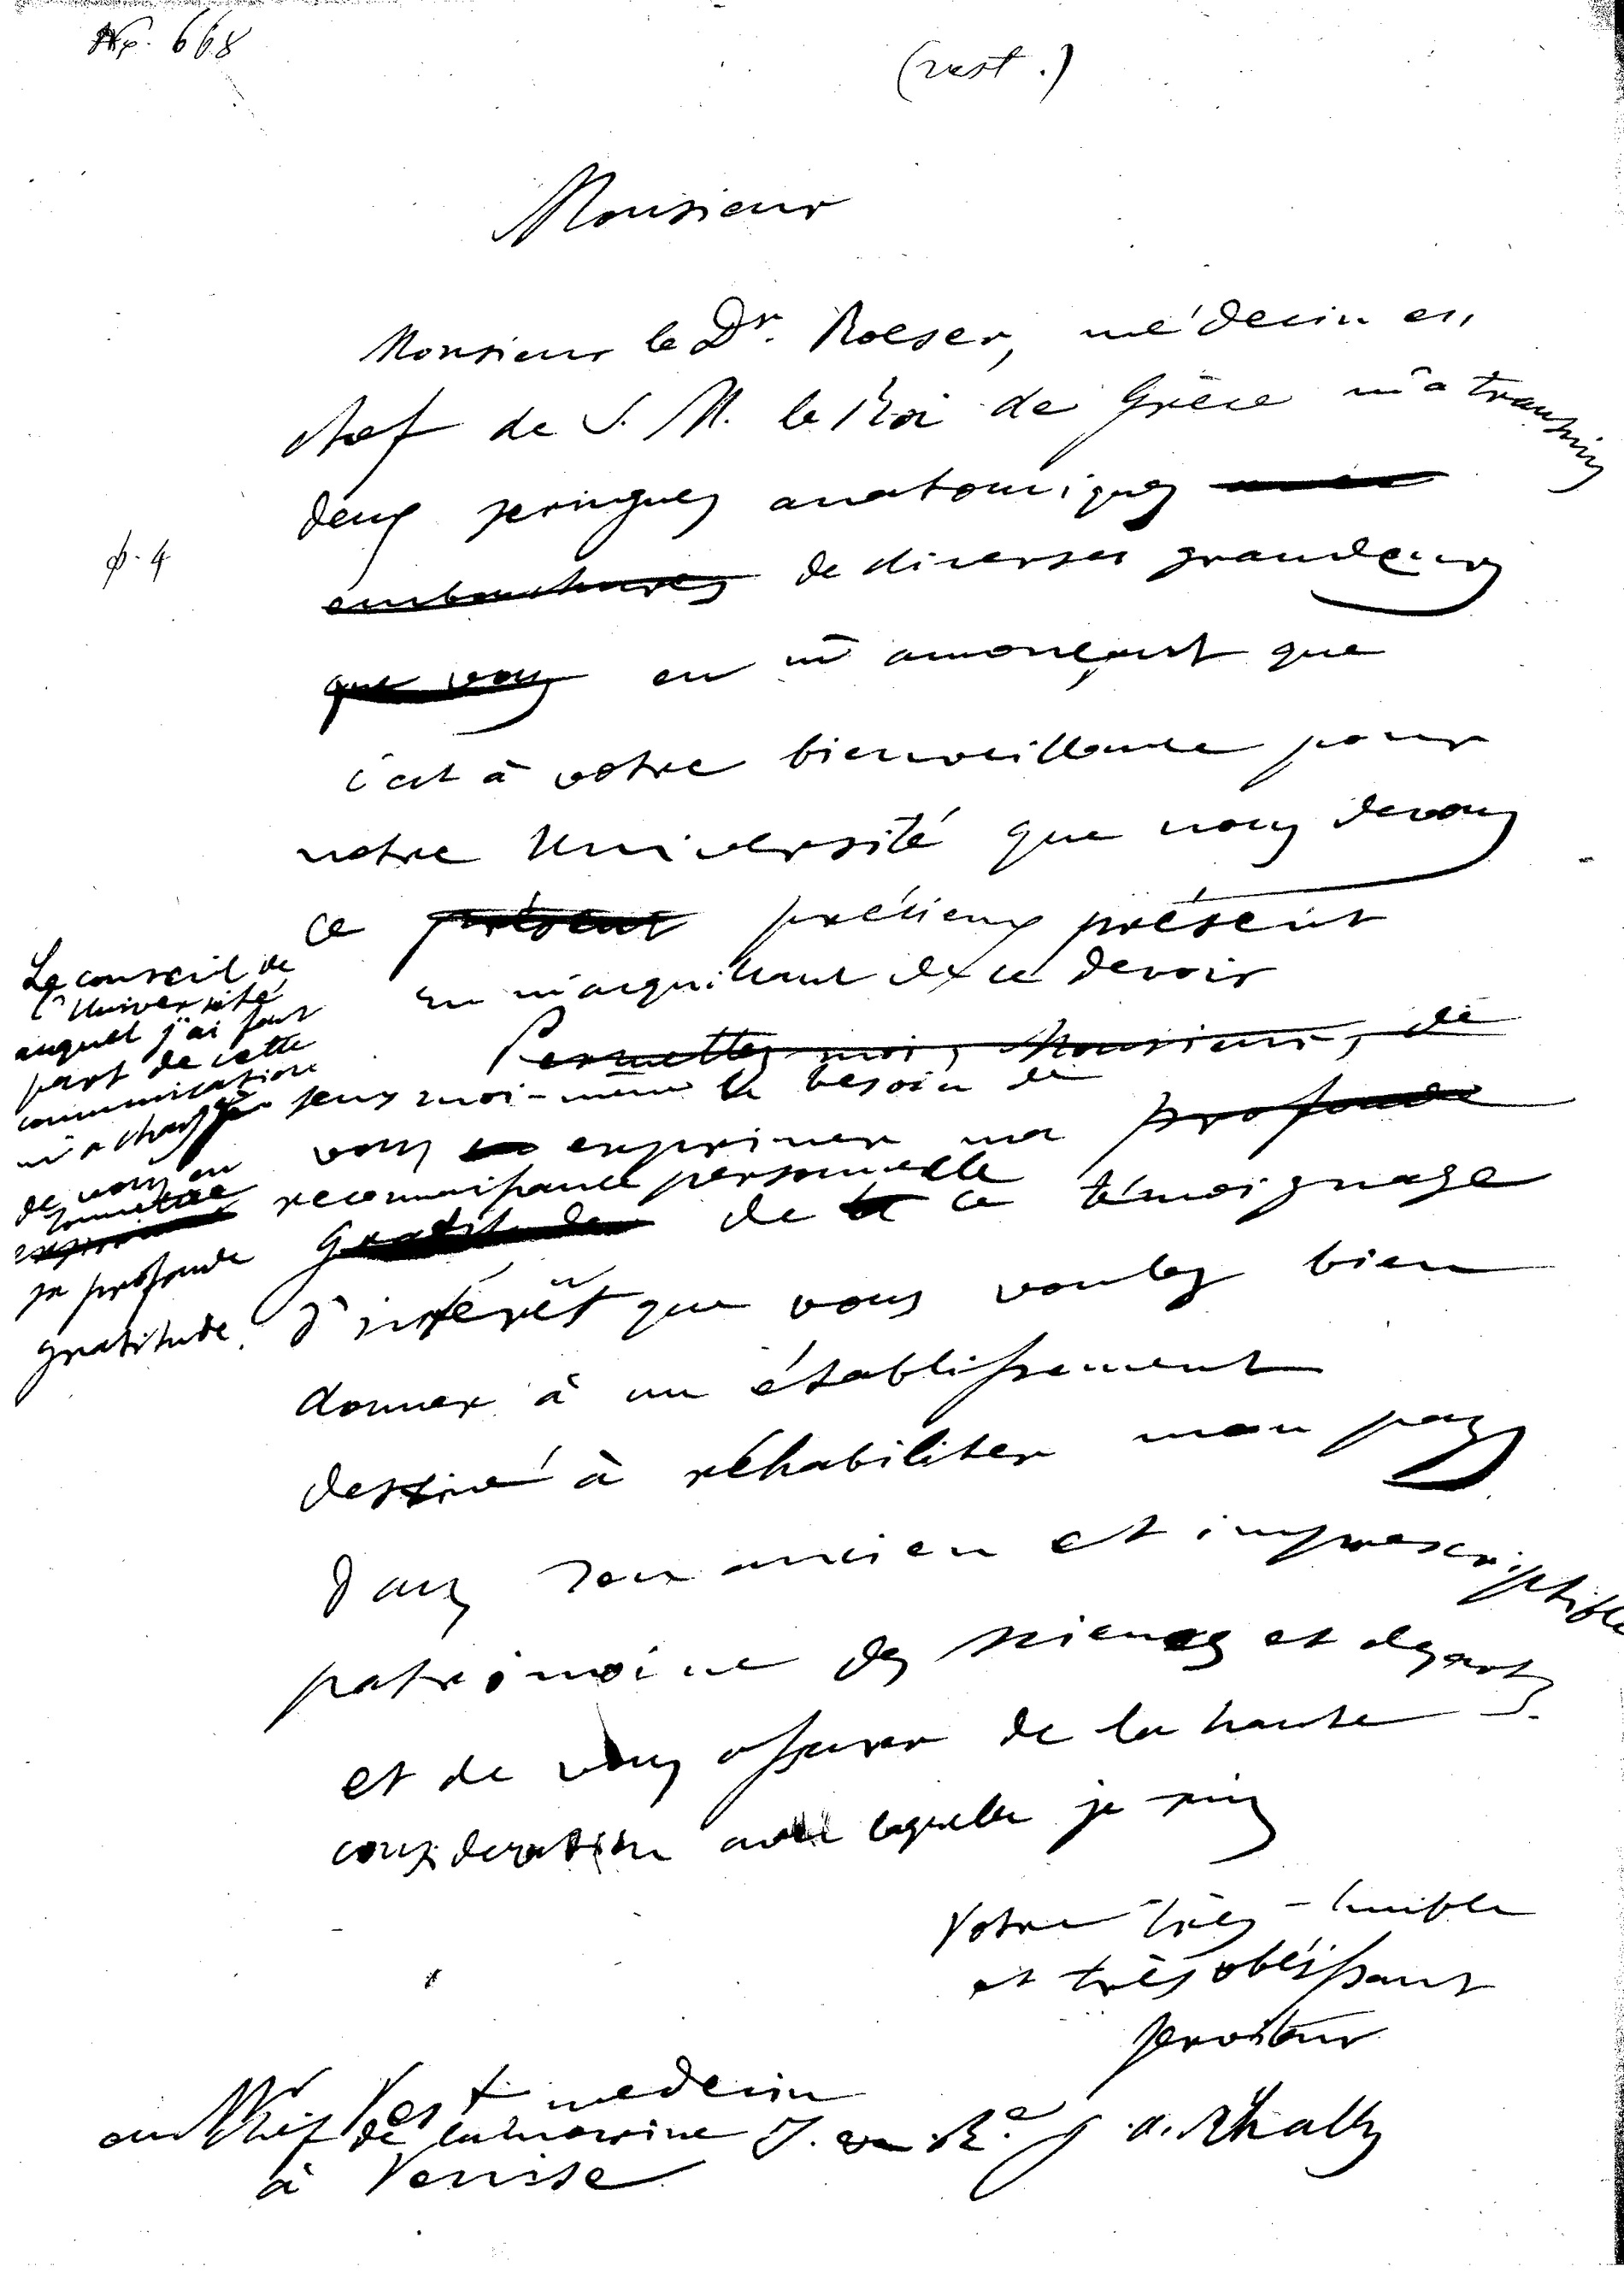 Nr. 668
(vest.)
Monsieur
Monsieur le Dr. Roeser, médecin en
chef de S. M. le Roi de Grèce m'a transmis
deux seringues anatomiques avec
embouchures de diverses grandeurs
φ. 4
que vous en m'annonçant que
c'est à votre bienveillance pour
notre Université que nous devons
ce présent précieux présent
en m'acquittant de ce devoir
Permettez moi, Monsieur, de
je sens moi-même le besoin de
vous exprimer ma profonde
reconnaissance personnelle
gratitude de la ce témoignage
d'intérêt que vous voulez bien
donner à un établissement
destiné à réhabiliter mon pays
dans son ancien et imprescriptible
patrimoine des sciences et des arts
et de vous assurer de la haute
consideration avec laquelle je suis
Le conseil de
l'Université
auquel j'ai fait
part de cette
communication
m'a chargé
de vous en
exprimer
sa profonde
gratitude.
Votre très-humble
et très obéissant
serviteur
Mr Vest medecin
en chef de la marine J. et R.e
à Venise
G. A. Rhally